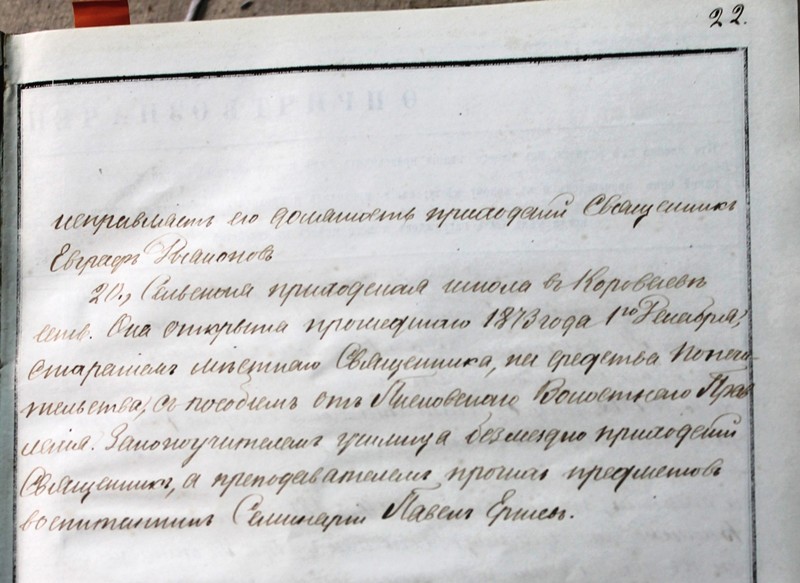 22.
исправляетъ его должность приходскій Священникъ
Евграфъ
20., Сельская приходская школа въ
есть. Она открыта прошедшаго 1873 года 1го Декабря,
стараніемъ мѣстнаго Священника, на средства Попечи-
тельства, съ пособіемъ отъ Волостнаго Прав
ленія. Законоучителемъ училища безмездно приходскій
Священникъ, а преподавателемъ прочихъ предметовъ
воспитанникъ Семинаріи Павелъ